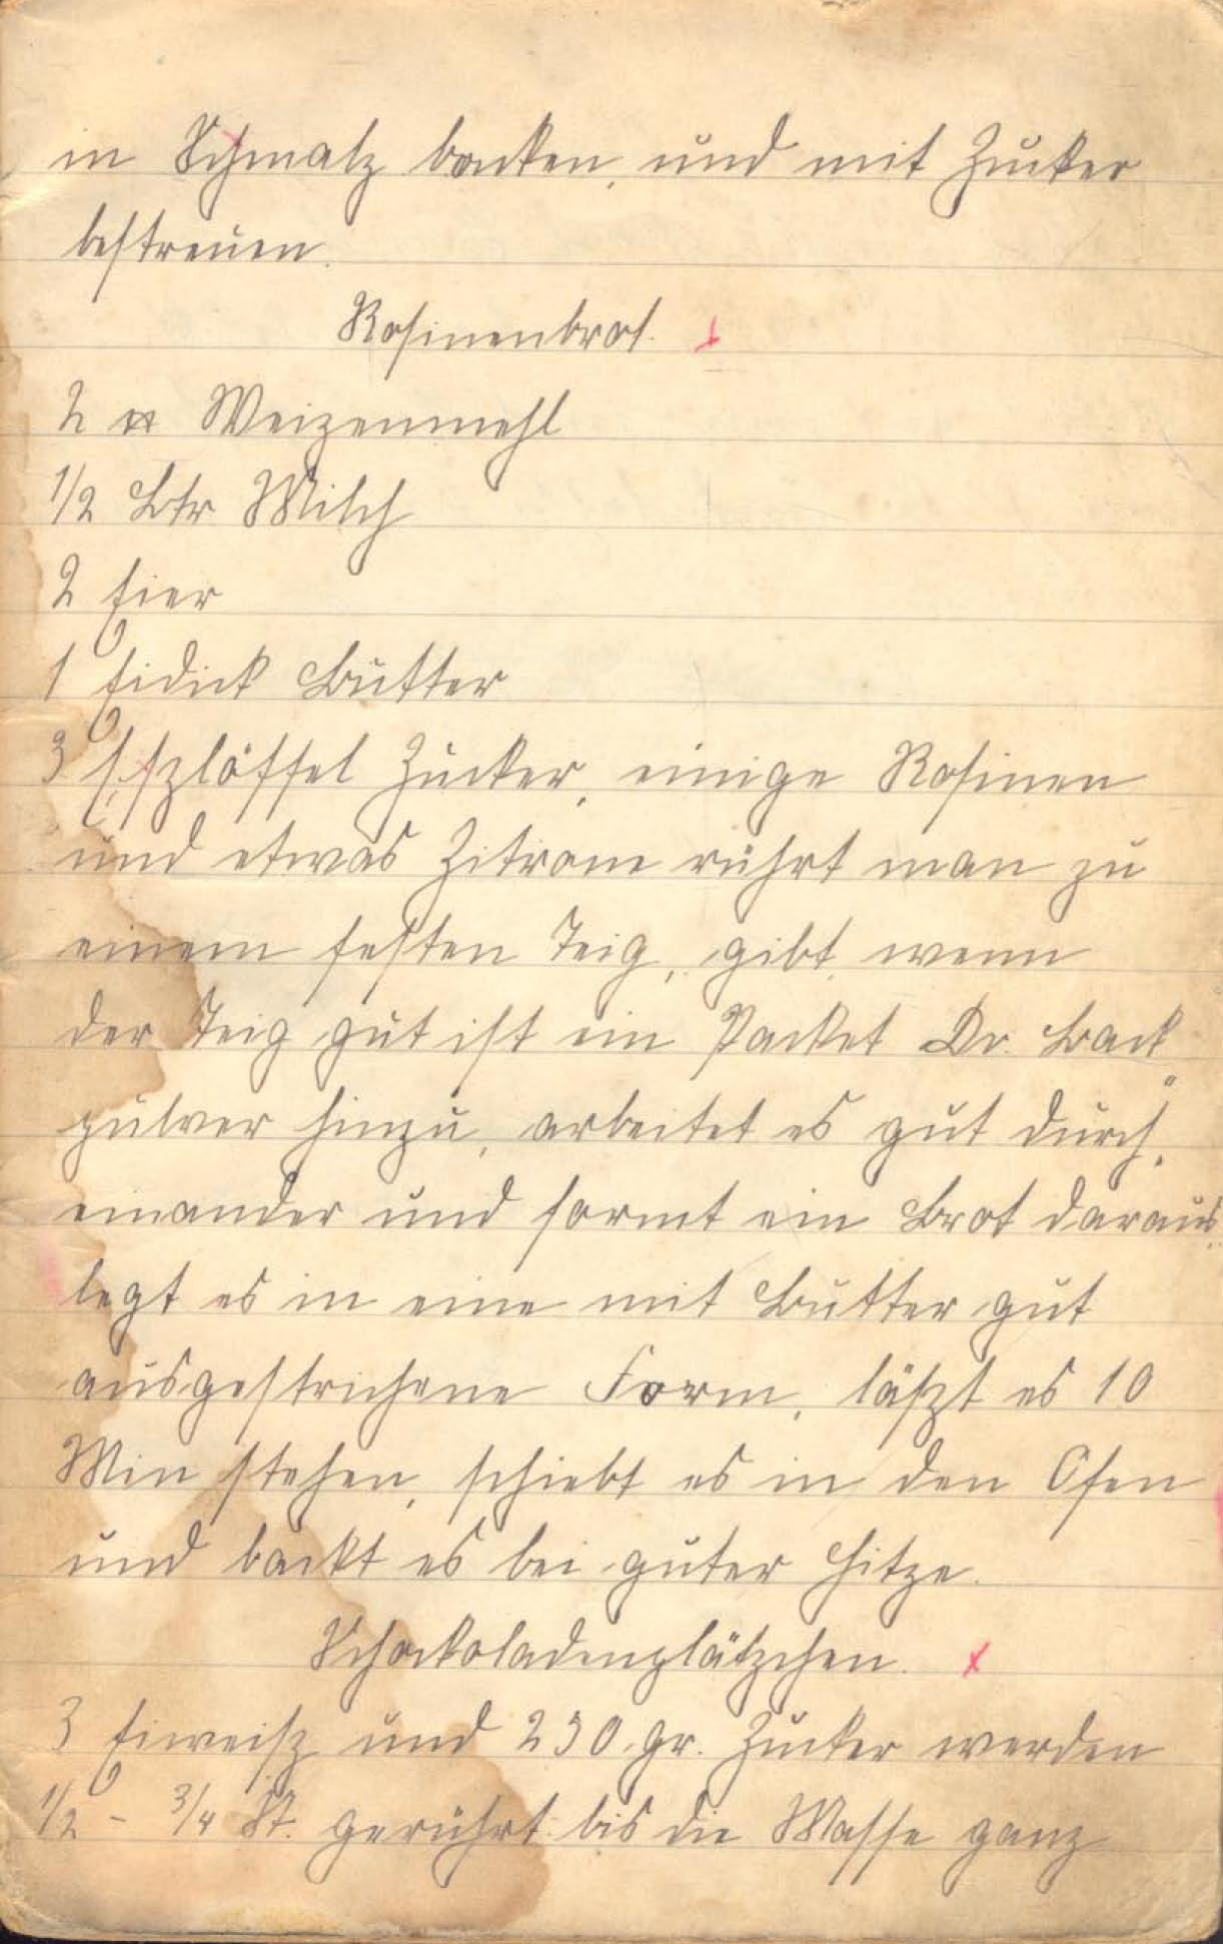 in Schmalz backen, und mit Zucker
bestreuen.
Rosinenbrot.
2 ℔ Weizenmehl
1/2 Ltr Milch
2 Eier
1 Eidick Butter
3 Eszlöffel Zucker, einige Rosinen
und etwas Zitrone rührt man zu
einem festen Teig, gibt wenn
der Teig gut ist ein Packet Dr. Back
pulver hinzu, arbeitet es gut durch,
einander und formt ein Brot daraus,
legt es in eine mit Butter gut
ausgestrichene Form, läszt es 10
Min stehen, schiebt es in den Ofen
und backt es bei guter Hitze.
Schockoladenplätzchen.
3 Eiweisz und 250 gr. Zucker werden
1/2 - 3/4 St. gerührt bis die Masse ganz